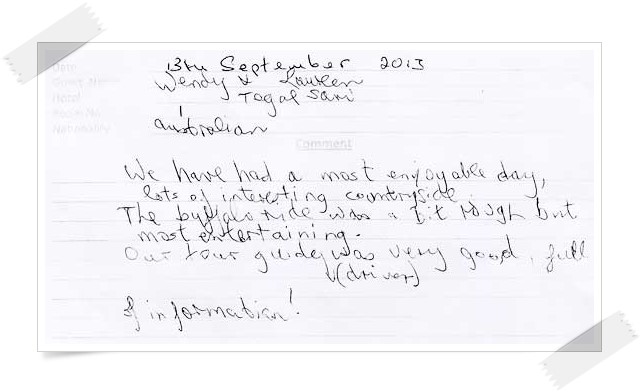 Date 13th September 2013
Guest Name Wendy &
Hotel Tegal Sari
Room No. 1
Nationality Australian
Comment
We have had a most enjoyable day,
lots of interesting countryside.
The buffalo ride was a bit rough but
most entertaining.
Our tour guide was very good, full
(driver)
of information!